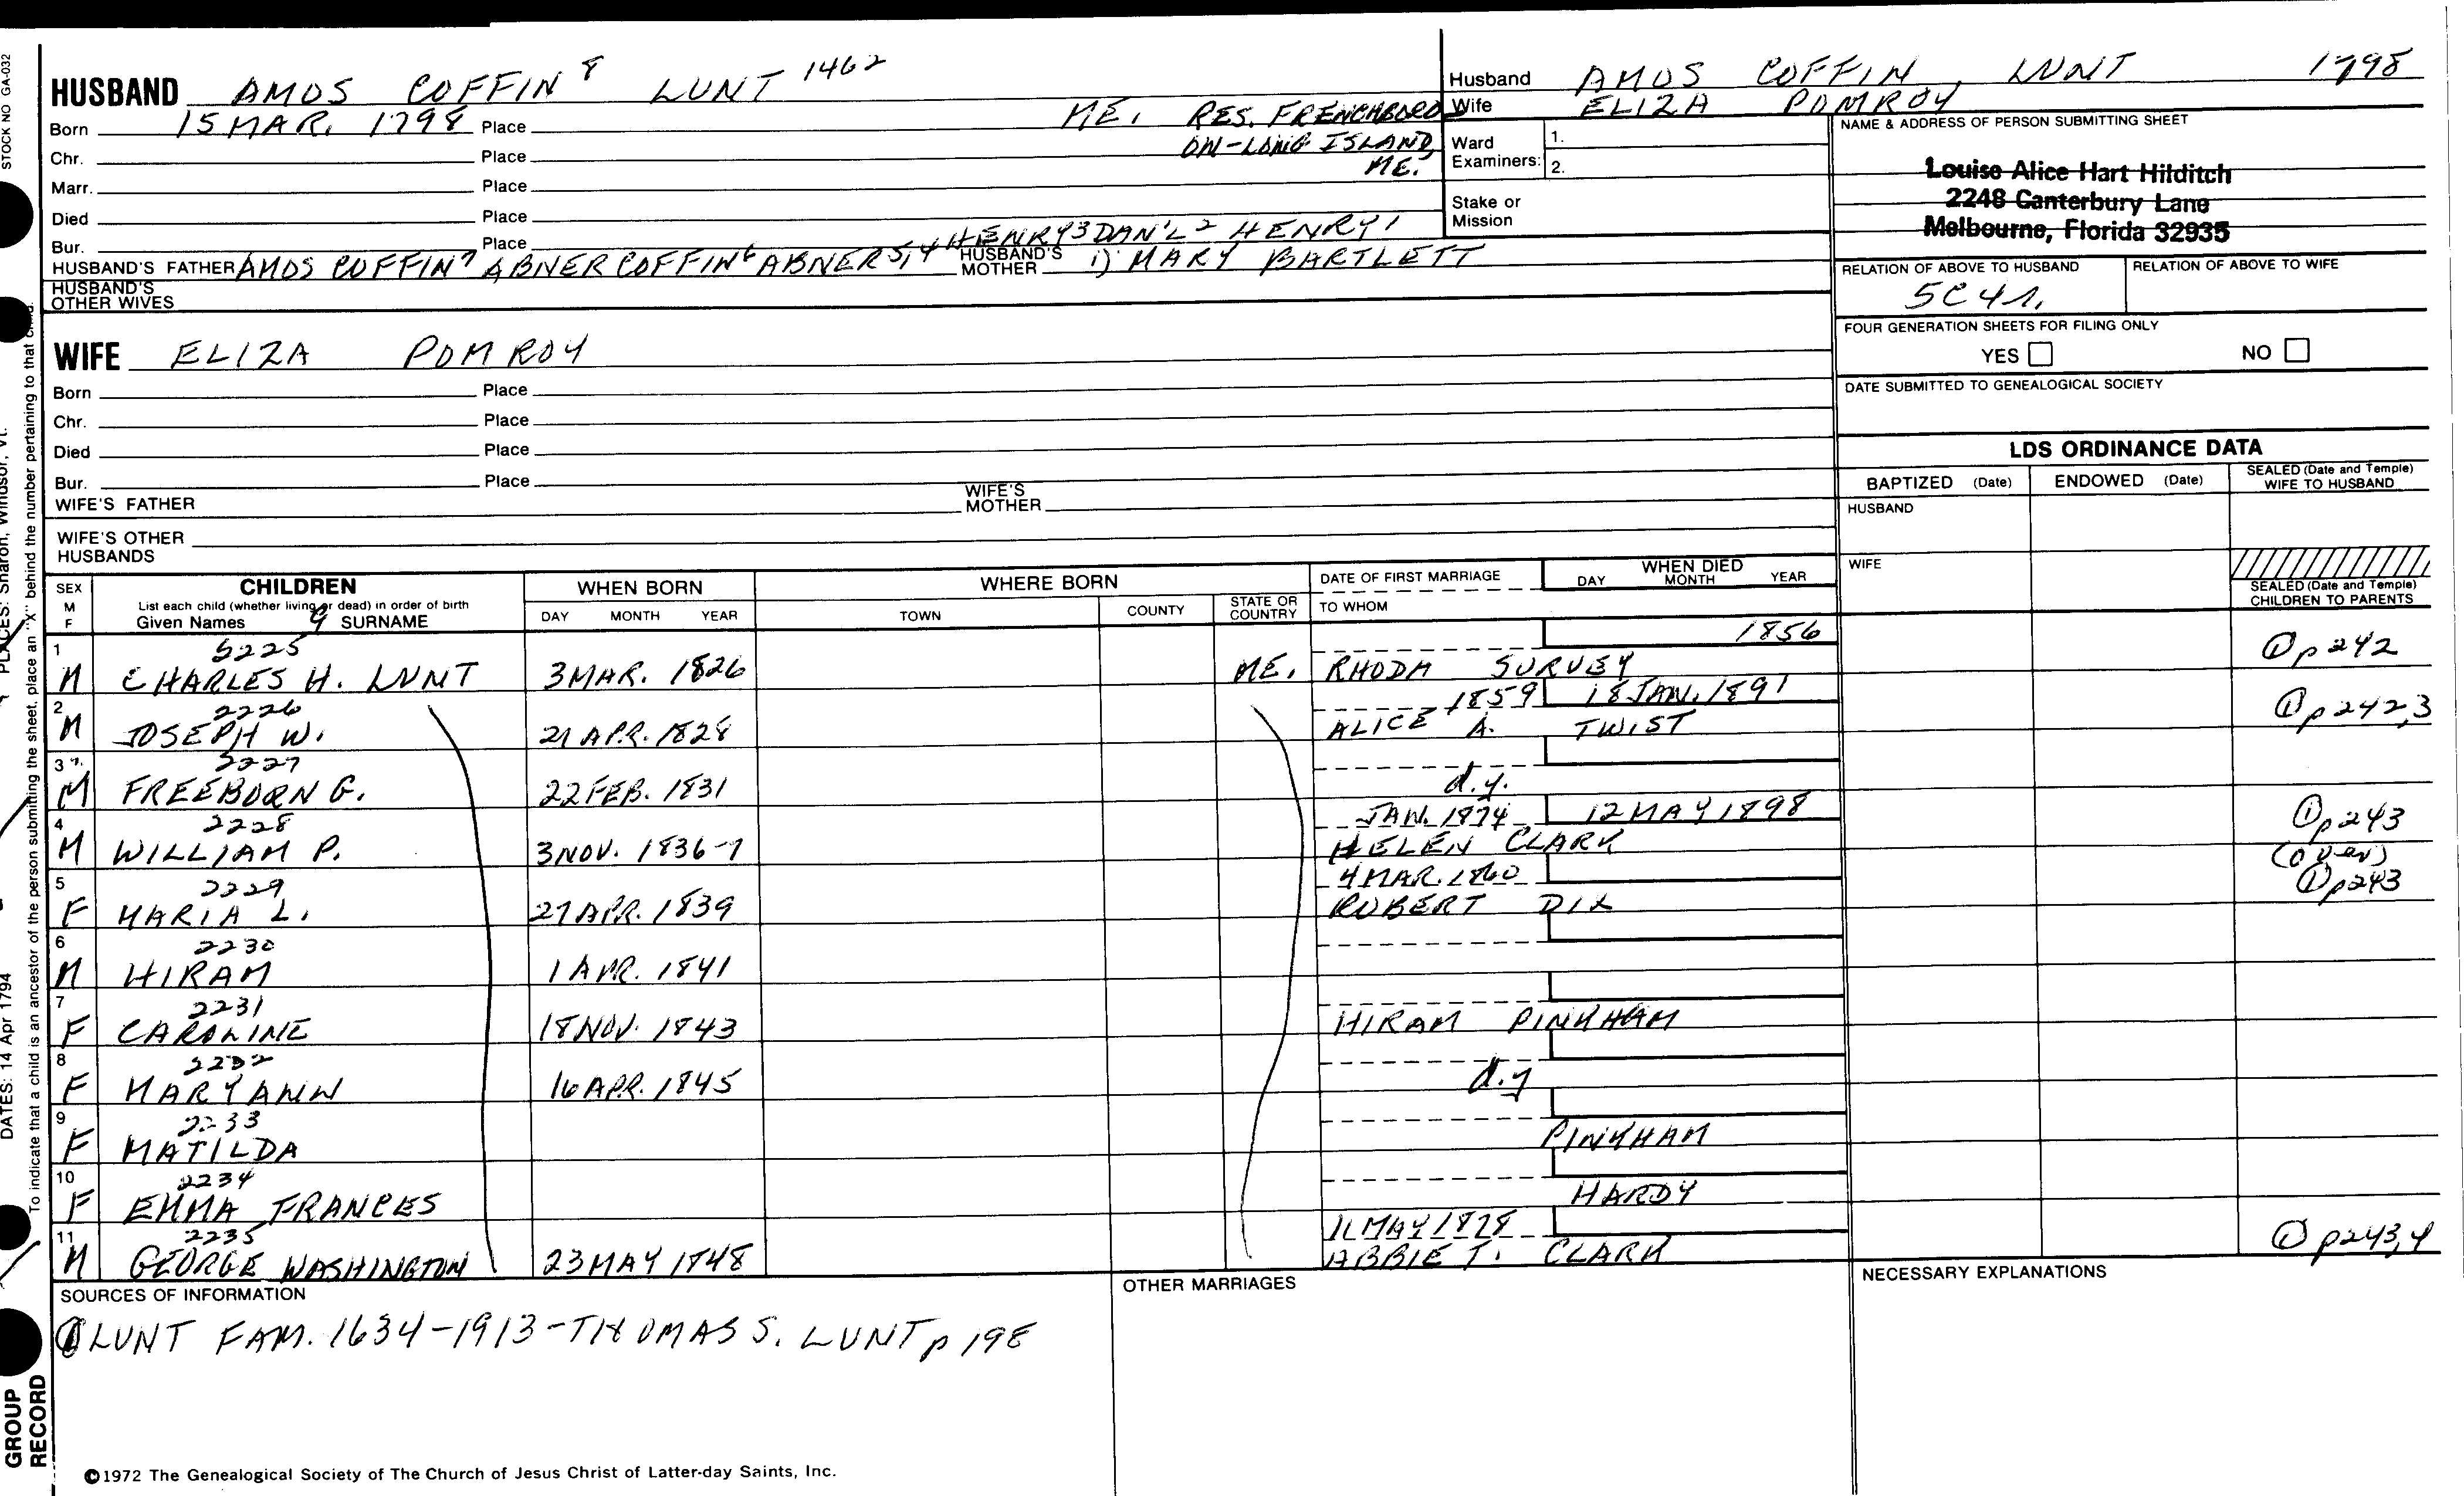 STOCK NO GA-032
HUSBAND AMOS COFFIN 8 LUNT 1462
Born 15 MAR. 1798 Place ME. RES. FRENCHBORO
Chr. Place ON-LONG ISLAND,
ME.
Marr. Place
Died Place
Bur. Place
HUSBAND'S FATHER AMOS COFFIN 7 ABNER COFFIN 6 ABNER 5,4 HENRY 3 DAN'L 2 HENRY 1
HUSBAND'S MOTHER 1) MARY BARTLETT
HUSBAND'S OTHER WIVES
Husband AMOS COFFIN LUNT 1798
Wife ELIZA POMROY
Ward Examiners: 1.
2.
Stake or Mission
NAME & ADDRESS OF PERSON SUBMITTING SHEET
Louise Alice Hart Hilditch
2248 Canterbury Lane
Melbourne, Florida 32935
RELATION OF ABOVE TO HUSBAND RELATION OF ABOVE TO WIFE
5C4r.
FOUR GENERATION SHEETS FOR FILING ONLY
YES NO
DATE SUBMITTED TO GENEALOGICAL SOCIETY
WIFE ELIZA POMROY
Born Place
Chr. Place
Died Place
Bur. Place
WIFE'S FATHER WIFE'S MOTHER
WIFE'S OTHER HUSBANDS
LDS ORDINANCE DATA
BAPTIZED (Date) ENDOWED (Date) SEALED (Date and Temple) WIFE TO HUSBAND
HUSBAND
WIFE
SEALED (Date and Temple) CHILDREN TO PARENTS
SEX M F
CHILDREN
List each child (whether living or dead) in order of birth
Given Names 9 SURNAME
WHEN BORN
DAY MONTH YEAR
WHERE BORN
TOWN COUNTY STATE OR COUNTRY
DATE OF FIRST MARRIAGE
TO WHOM
WHEN DIED
DAY MONTH YEAR
1 2225 1856
M CHARLES H. LUNT 3 MAR. 1826 ME. RHODA SURVEY ① p 242
2 2226 1859 18 JAN. 1891
M JOSEPH W. 21 APR. 1828 ALICE A. TWIST ① p 242,3
3 2227
M FREEBORN G. 22 FEB. 1831 d.y.
4 2228 JAN. 1874 12 MAY 1898
M WILLIAM P. 3 NOV. 1836-7 HELEN CLARK ① p 243
(over)
5 2229 4 MAR. 1860
F MARIA L. 27 APR. 1839 ROBERT DIX ① p 243
6 2230
M HIRAM 1 APR. 1841
7 2231
F CAROLINE 18 NOV. 1843 HIRAM PINKHAM
8 2232
F MARY ANN 16 APR. 1845 d.y
9 2233
F MATILDA PINKHAM
10 2234
F EMMA FRANCES HARDY
11 2235 11 MAY 1878
M GEORGE WASHINGTON 23 MAY 1848 ABBIE T. CLARK ① p 243,4
SOURCES OF INFORMATION
① LUNT FAM. 1634-1913-THOMAS S. LUNT p 198
OTHER MARRIAGES
NECESSARY EXPLANATIONS
©1972 The Genealogical Society of The Church of Jesus Christ of Latter-day Saints, Inc.
To indicate that a child is an ancestor of the person submitting the sheet, place an "X" behind the number pertaining to that child.
PLACES: Sharon, Windsor, Vt.
DATES: 14 Apr 1794
GROUP
RECORD